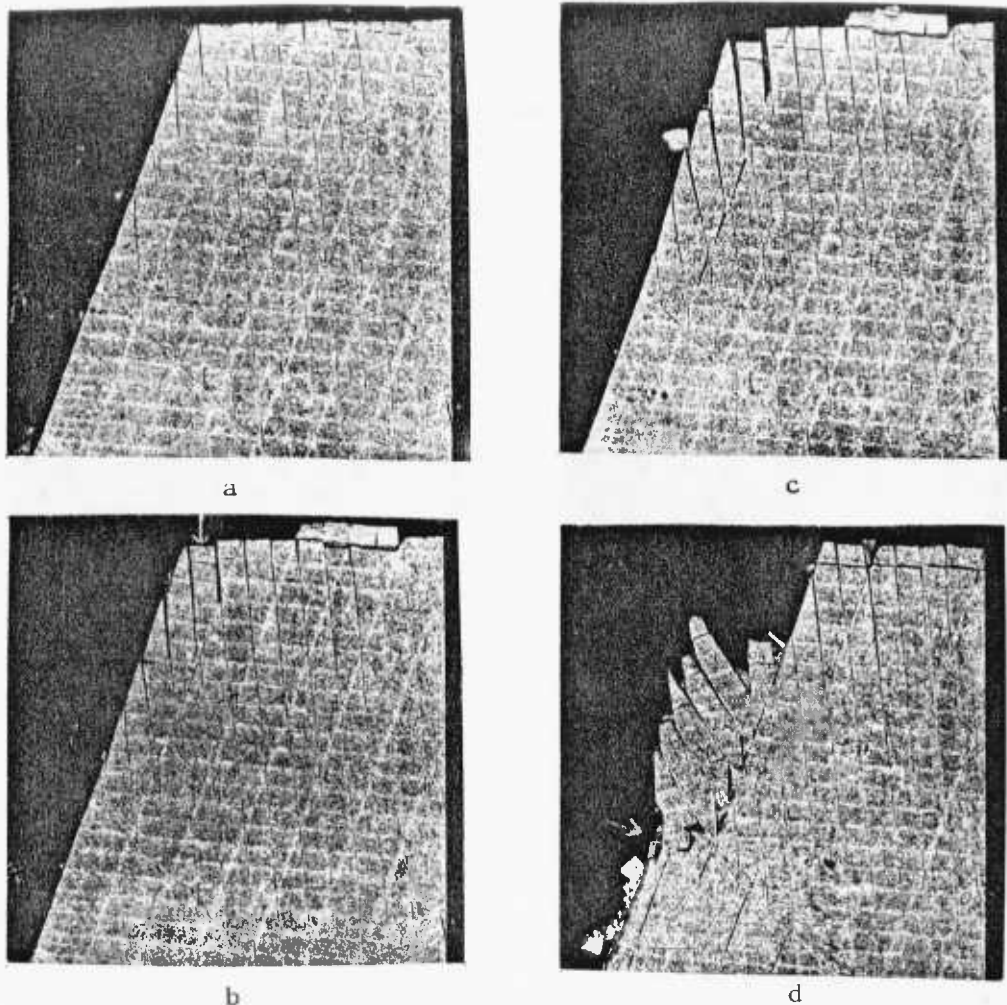 a
c
b
d